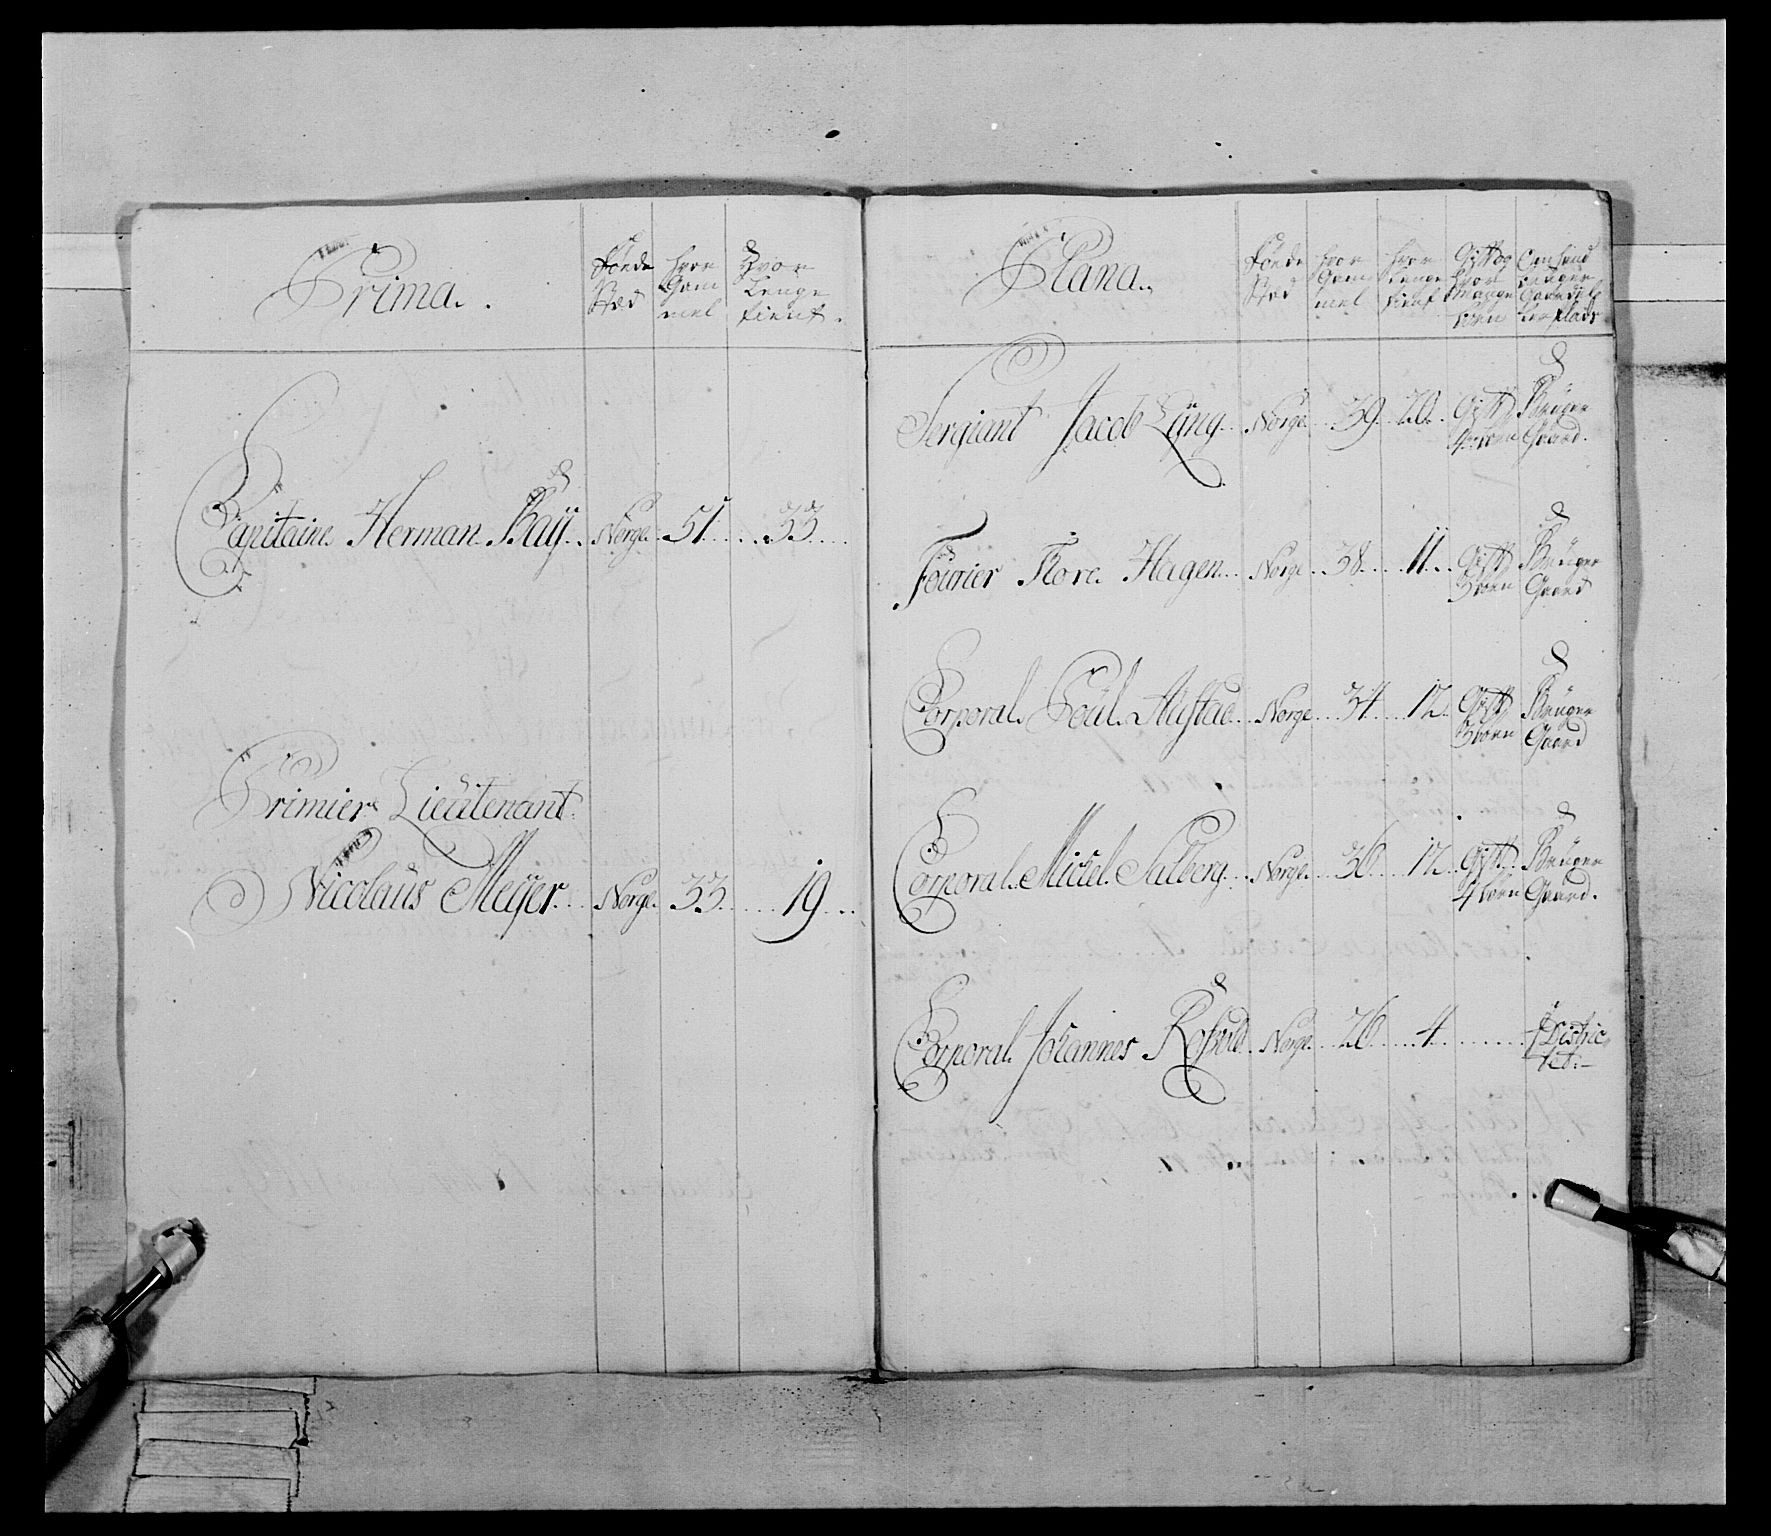 Prima.
Föede Stæd
hvor Gammel
Hvor Lenge tient.
Capitaine Herman Baÿ Norge 51 33
Primier Lieütenant
Nicolaüs Meÿer Norge 33 19
Plana.
Föede Stæd
hvor Gammel
hvor Lenge tient
Gift og hvor Mange börn
Om hand brüger Gaard eller plads
Sergiant Jacob Lÿng Norge 39 20 Gift 4 börn Brüger Gaard.
Foürier Tore Hagen Norge 38 11 Gift 3 börn Brüger Gaard
Corporal Poül Aüstad Norge 34 12 Gift 3 börn Brüger Gaard
Corporal Michel Salberg Norge 36 12 Gift 4 börn Brüger Gaard.
Corporal Johannes Norge 26 4 i Districtet